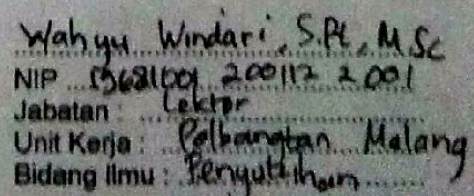 Wahyu Windari, S.Pt, M.Sc
NIP 19681001 200112 2 001
Jabatan : Lektor
Unit Kerja : Polbangtan Malang
Bidang Ilmu : Penyuluhan